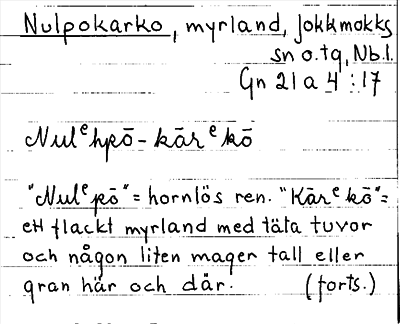 Nulpokarko, myrland, Jokkmokks
sn o. tg, Nb.l.
Gn 21 a 4 : 17
Nulᵉhpō - kārᵉkō
"Nulᵉpō" = hornlös ren. "Kārᵉkō" =
ett flackt myrland med täta tuvor
och någon liten mager tall eller
gran här och där. (forts.)